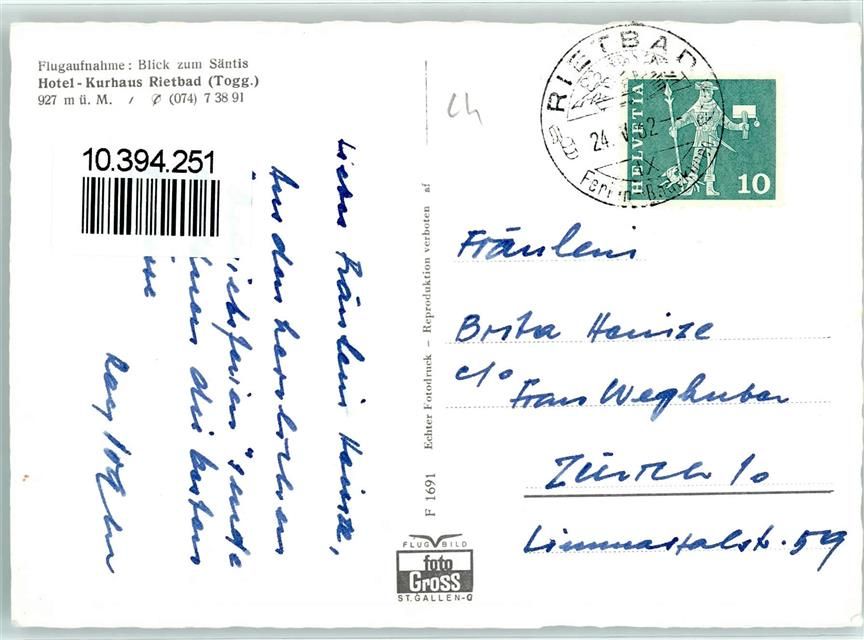 Flugaufnahme: Blick zum Säntis
Hotel-Kurhaus Rietbad (Togg.)
927 m ü. M. (074) 7 38 91
10.394.251
Ch
RIETBAD
24. V 62
HELVETIA
10
Liebes Fräulein Heinze,
Aus den herrlichen
sende
Ihnen die besten
Fräulein
Brita Heinze
c/o Frau Weghuber
Zürich 10
Limmattalstr. 59
F 1691 Echter Fotodruck – Reproduktion verboten af
FLUG BILD
foto
Gross
ST. GALLEN-O